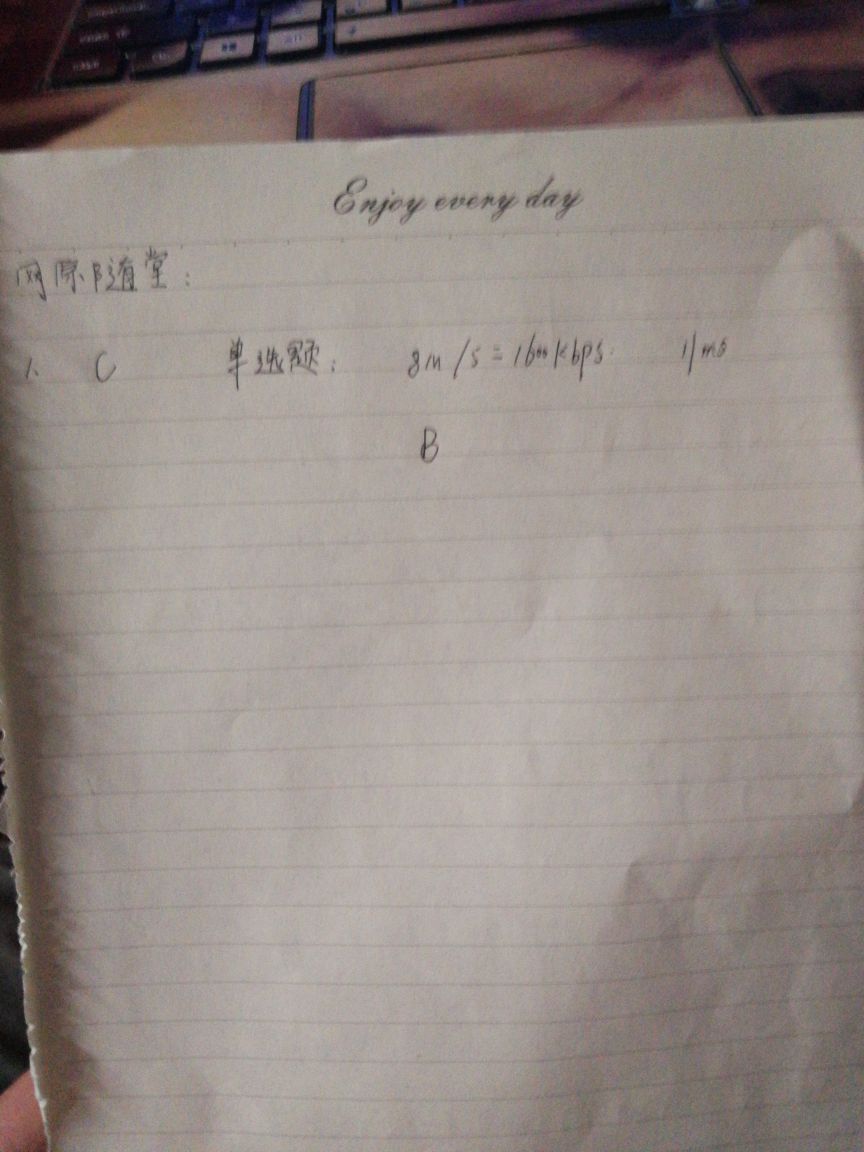 Enjoy every day
网原随堂：
1. C 单选题： 8M/s = 1600kbps. 1/ms
B